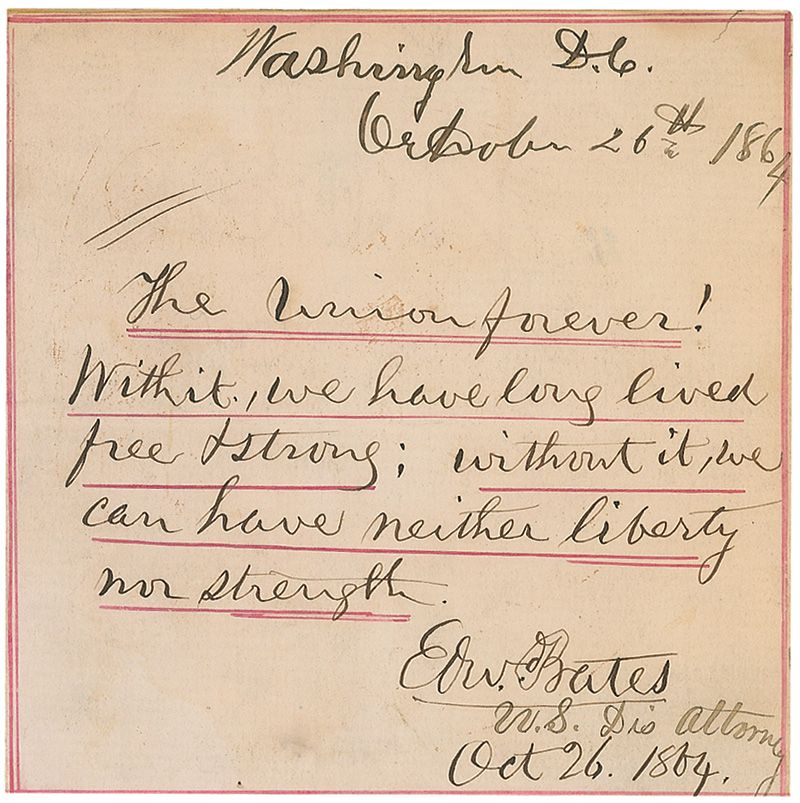 Washington D.C.
October 26th 1864
The Union forever!
With it, we have long lived
free & strong; without it, we
can have neither liberty
nor strength.
Edw. Bates
U.S. Dis Attorney
Oct 26. 1864.